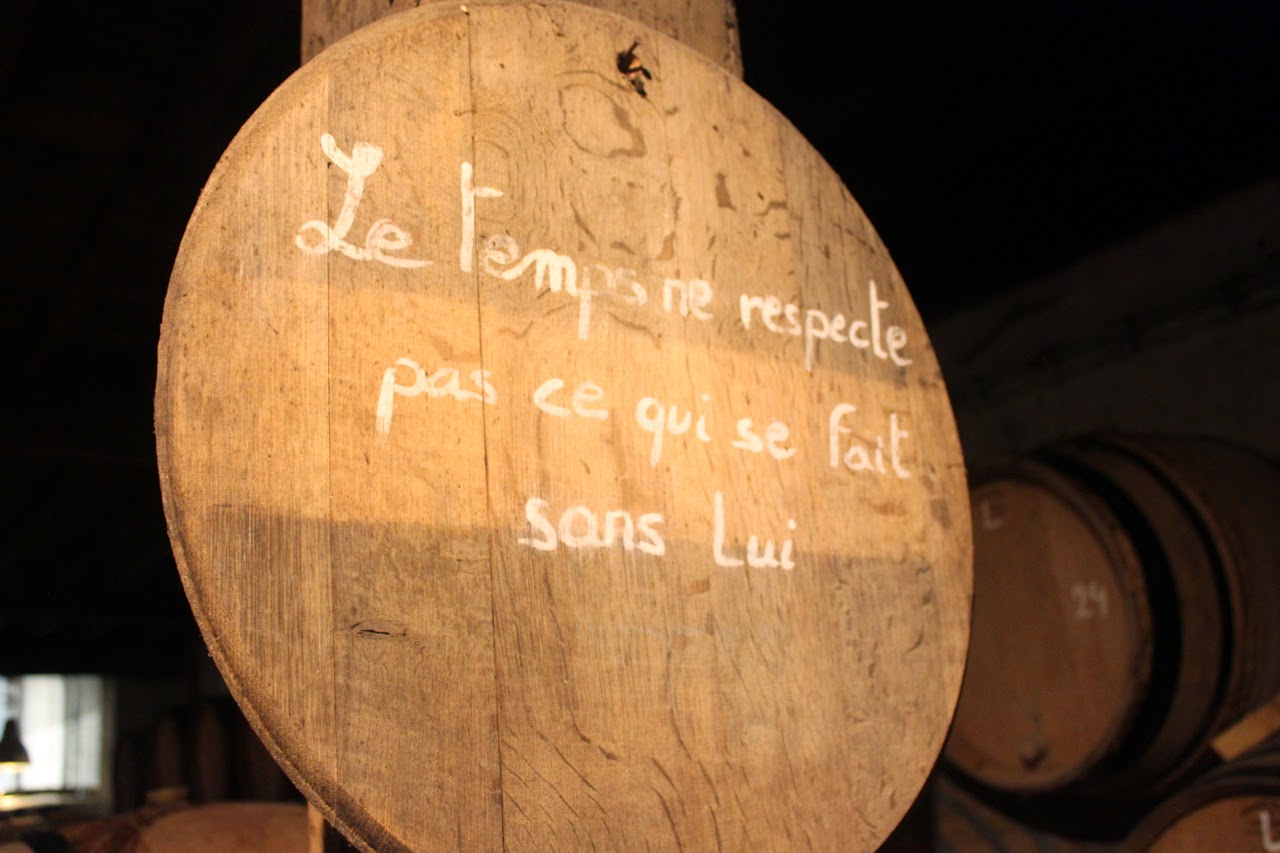 Le temps ne respecte
pas ce qui se fait
sans Lui
L
24
L